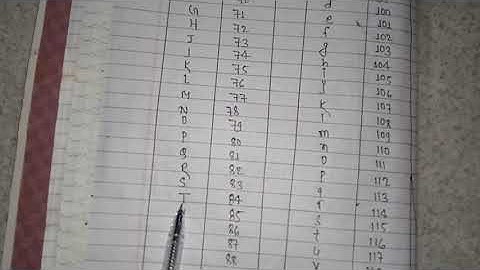 d 100
G 71 e 101
H 72 f 102
J 73 g 103
I 74 h 104
K 75 i 105
L 76 j 106
M 77 k 107
N 78 l 108
O 79 m 109
P 80 n 110
Q 81 o 111
R 82 p 112
S 83 q 113
T 84 r 114
85 s 115
86 t 116
87 u 117
88 v